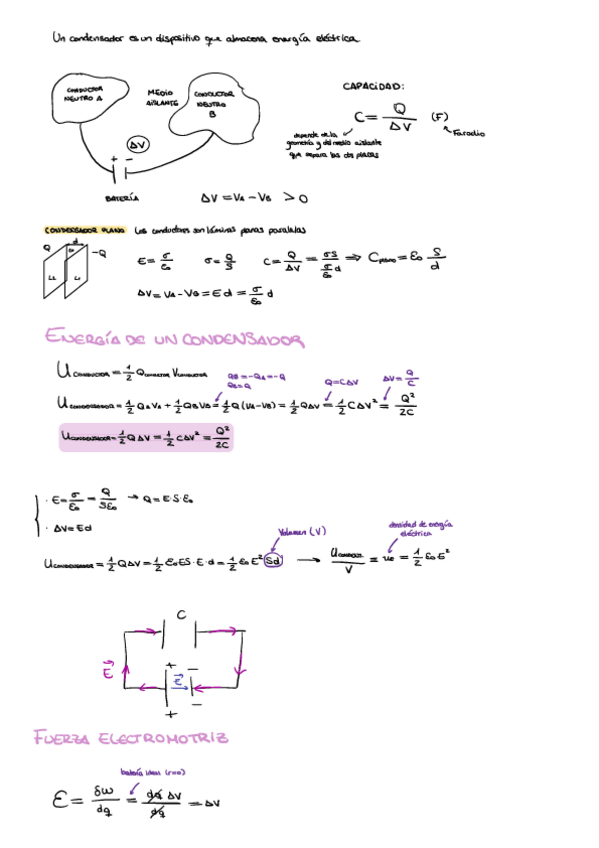 Un condensador es un dispositivo que almacena energía eléctrica.
CONDUCTOR NEUTRO A
MEDIO AISLANTE
CONDUCTOR NEUTRO B
ΔV
+ −
BATERÍA
CAPACIDAD:
C = Q/ΔV (F)
Faradio
depende de la
geometría y del medio aislante
que separa las dos placas
ΔV = VA − VB > 0
CONDENSADOR PLANO Los conductores son láminas planas paralelas
Q d −Q
E = σ/ε0 σ = Q/S C = Q/ΔV = σS/(σ/ε0 d) ⇒ Cplano = ε0 S/d
ΔV = VA − VB = E d = σ/ε0 d
ENERGÍA DE UN CONDENSADOR
UCONDUCTOR = 1/2 QCONDUCTOR VCONDUCTOR
QB = −QA = −Q
QA = Q
Q = CΔV
ΔV = Q/C
UCONDENSADOR = 1/2 QAVA + 1/2 QBVB = 1/2 Q(VA − VB) = 1/2 QΔV = 1/2 CΔV² = Q²/2C
UCONDENSADOR = 1/2 QΔV = 1/2 CΔV² = Q²/2C
· E = σ/ε0 = Q/Sε0 → Q = E·S·ε0
· ΔV = Ed
Volumen (V)
densidad de energía
eléctrica
UCONDENSADOR = 1/2 QΔV = 1/2 ε0ES·E·d = 1/2 ε0E² Sd → UCONDENS./V = ue = 1/2 ε0E²
C
E
+ −
E
+ −
FUERZA ELECTROMOTRIZ
batería ideal (r=0)
ε = δω/dq = dq ΔV/dq = ΔV